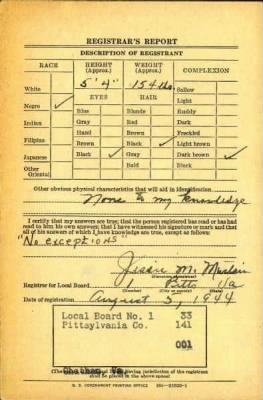 REGISTRAR'S REPORT
DESCRIPTION OF REGISTRANT
RACE HEIGHT (Approx.) WEIGHT (Approx.) COMPLEXION
White 5' 4" 154 lbs. Sallow
EYES HAIR Light
Negro ✓ Blue Blonde Ruddy
Indian Gray Red Dark
Filipino Hazel Brown Freckled
Brown Black ✓ Light brown
Japanese Black ✓ Gray Dark brown ✓
Other Oriental Bald Black
Other obvious physical characteristics that will aid in identification
None to my knowledge
I certify that my answers are true; that the person registered has read or has had
read to him his own answers; that I have witnessed his signature or mark and that
all of his answers of which I have knowledge are true, except as follows:
"No exceptions
Jessie M.
Registrar for Local Board Pitts Va
(Number) (City or county) (State)
Date of registration August 5, 1944
Local Board No. 1 33
Pittsylvania Co. 141
001
Chatham, Va.
(The stamp of the Local Board having jurisdiction of the registrant
shall be placed in the above space)
U. S. GOVERNMENT PRINTING OFFICE